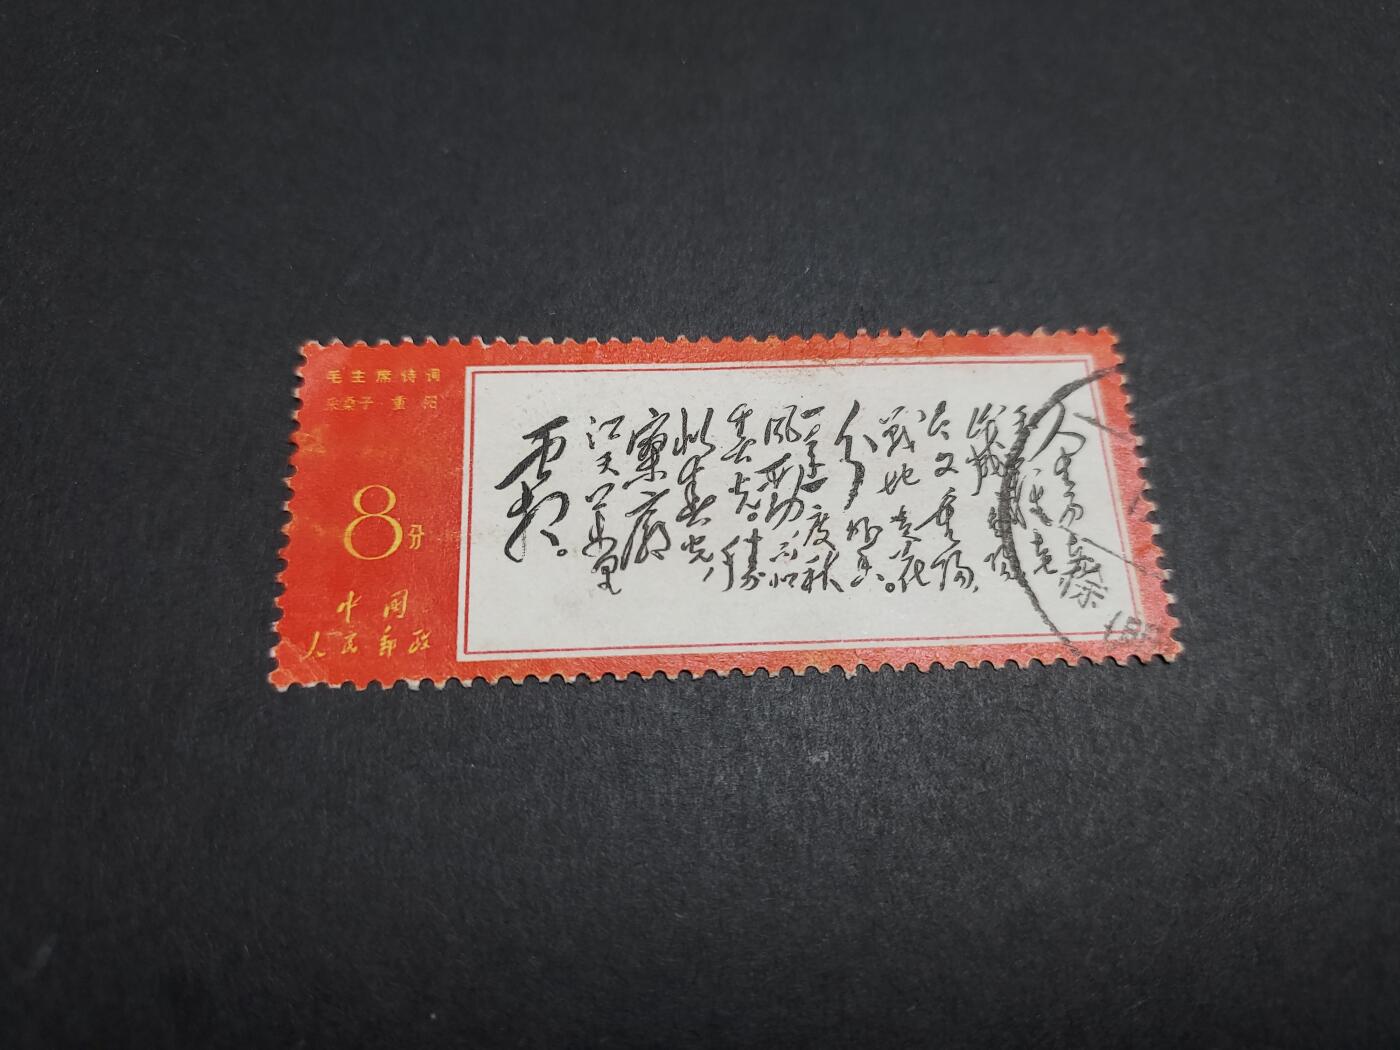 毛主席诗词
采桑子·重阳
8分
中国
人民邮政
人生易老天
難老
歲歲重陽
今又重陽,
戰地黄花
分外香。
一年一度秋
風勁,不似
春光。勝
似春光,
寥廓
江天萬里
霜。